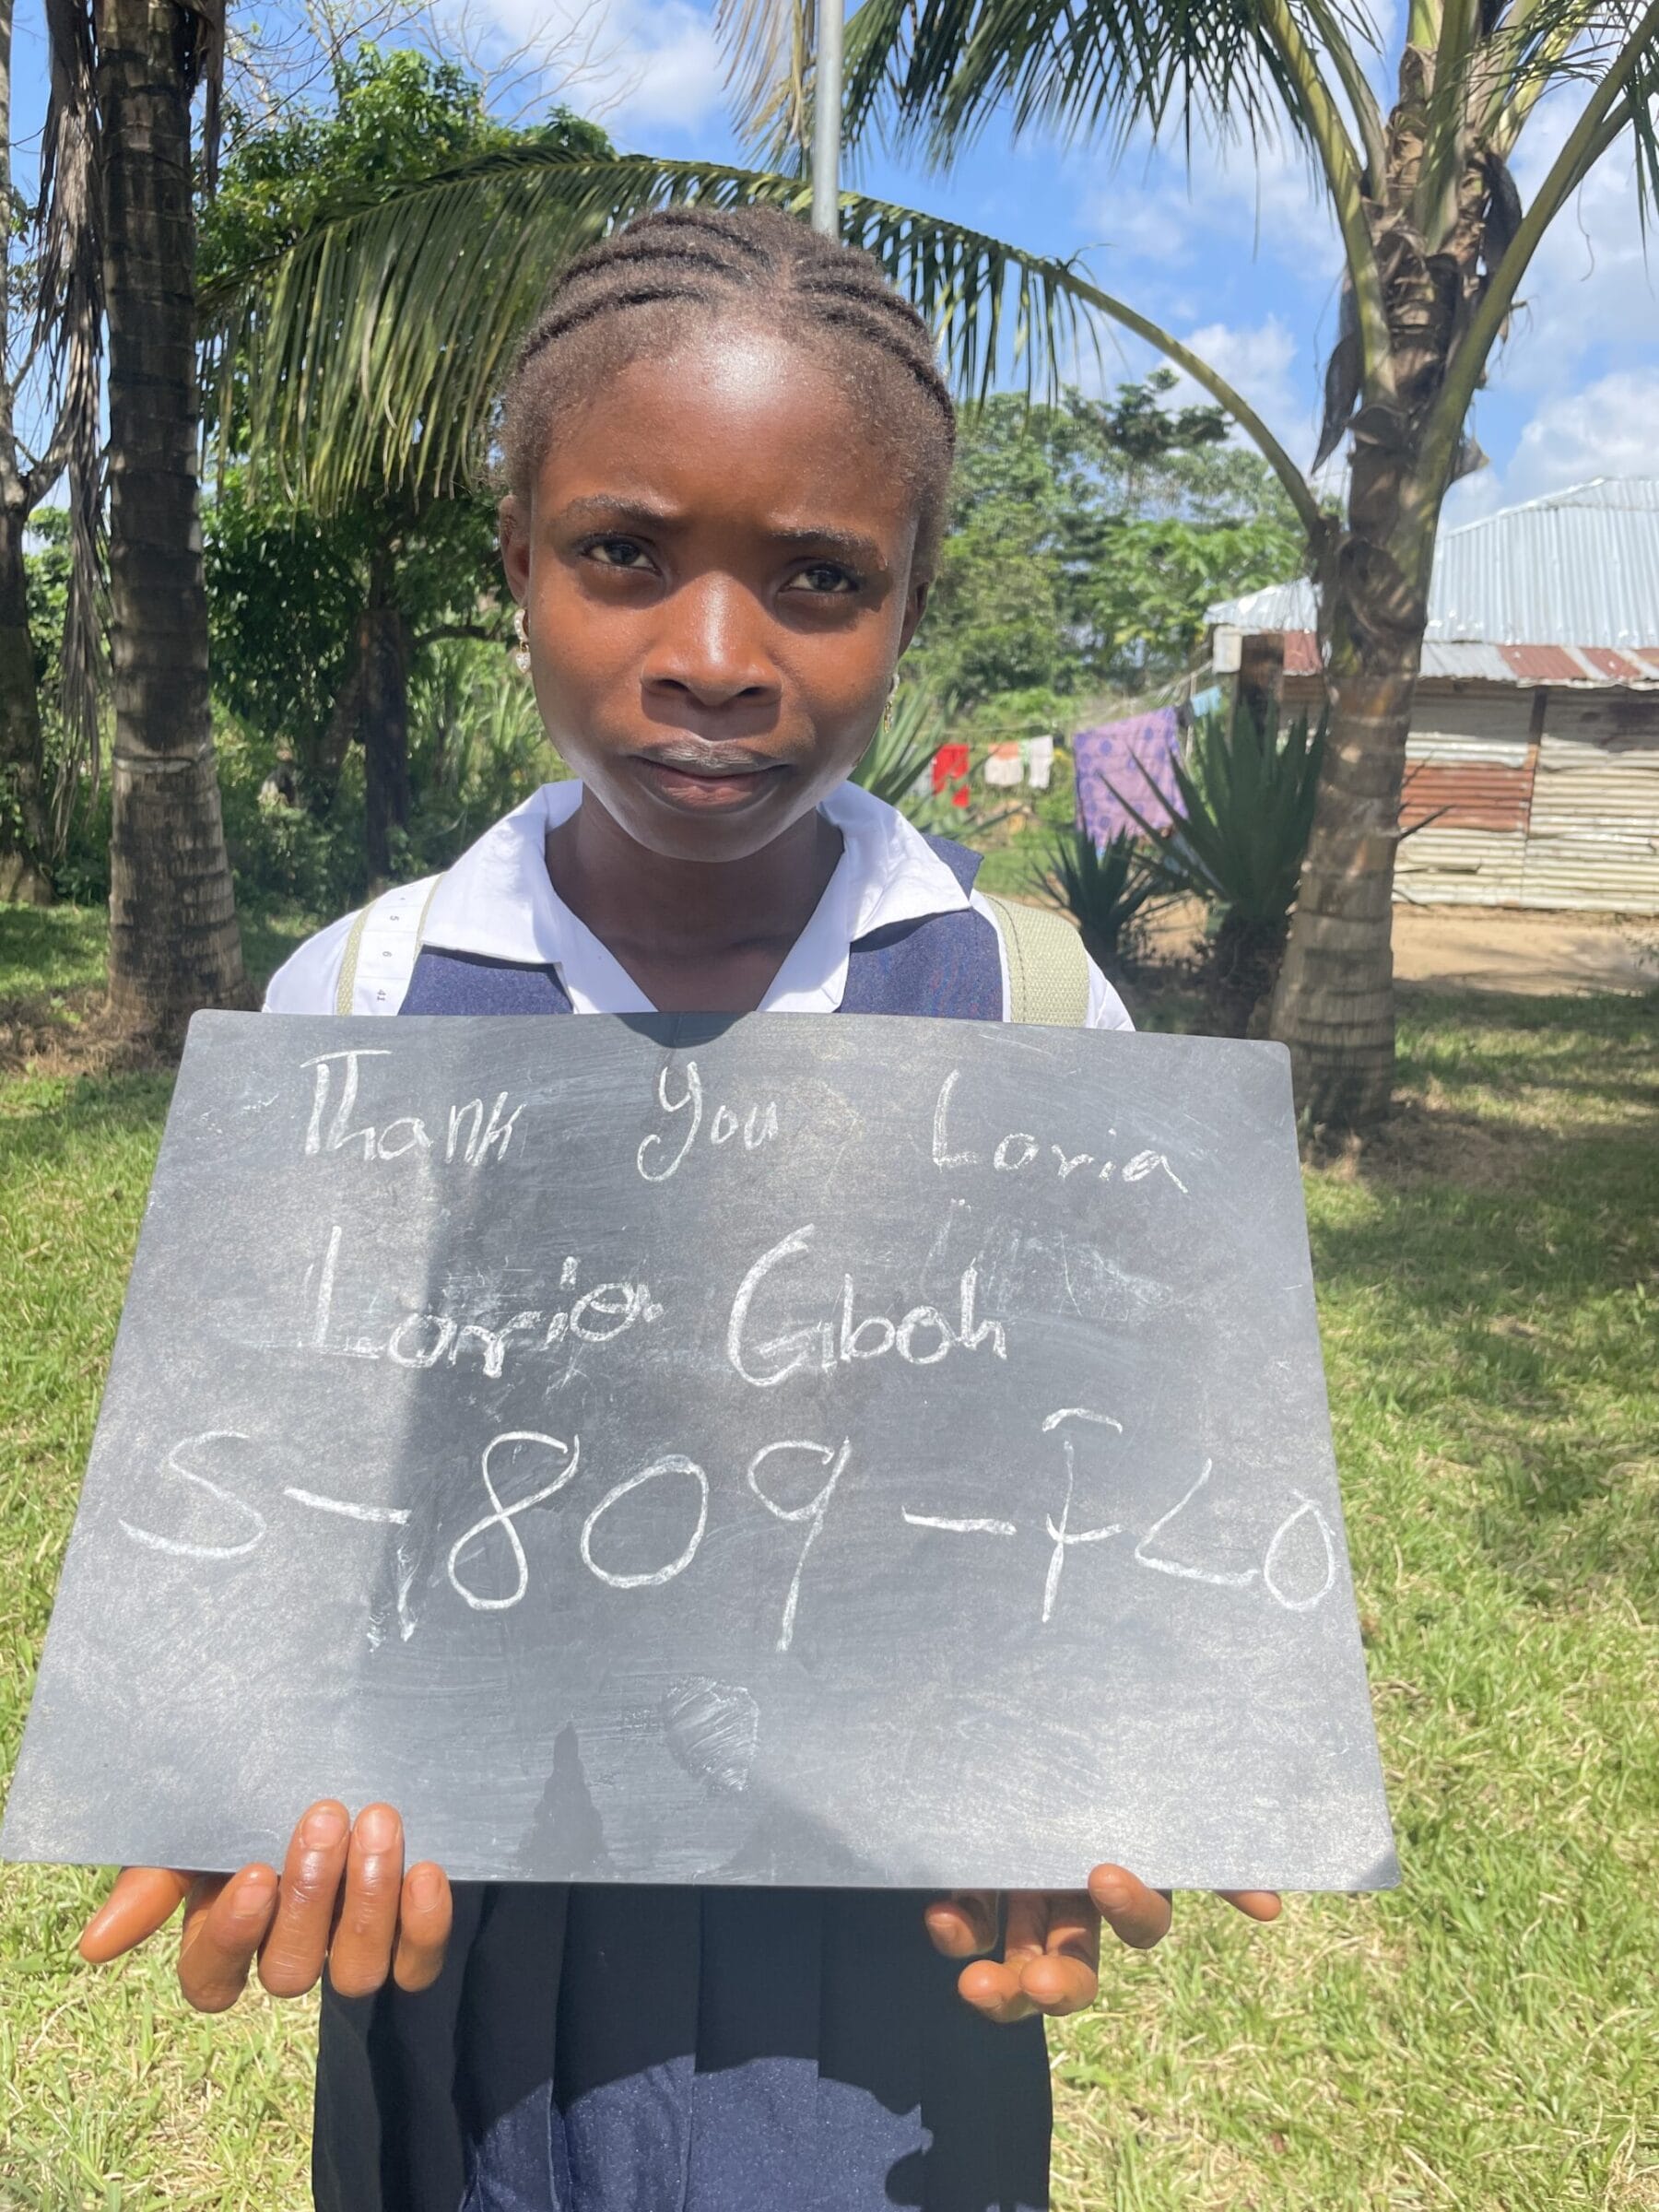 Thank You Loria
Lorria Gboh
S-1809-FLO
5
6
41